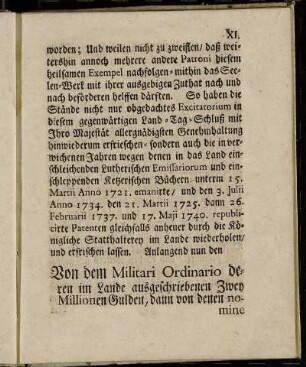 XI.
worden; Und weilen nicht zu zweifflen/ daß wei-
tershin annoch mehrere andere Patroni diesem
heilsamen Exempel nachfolgen/ mithin das See-
len-Werk mit ihrer ausgebigen Zuthat nach und
nach beförderen helffen därfften. So haben die
Stände nicht nur obgedachtes Excitatorium in
diesem gegenwärtigen Land-Tag-Schluß mit
Ihro Majestät allergnädigsten Genehmhaltung
hinwiederum erfrischen/ sondern auch die in ver-
wichenen Jahren wegen denen in das Land ein-
schleichenden Lutherischen Emissariorum und ein-
schleppenden Ketzerischen Büchern unterm 15.
Martii Anno 1721. emanirte/ und den 3. Julii
Anno 1734. den 21. Martii 1725. dann 26.
Februarii 1737. und 17. Maji 1740. republi-
cirte Patenten gleichfalls anheuer durch die Kö-
nigliche Statthalterey im Lande wiederholen/
und erfrischen lassen. Anlangend nun den
Von dem Militari Ordinario de-
ren im Lande ausgeschriebenen Zwey
Millionen Gulden, dann von denen no-
mine